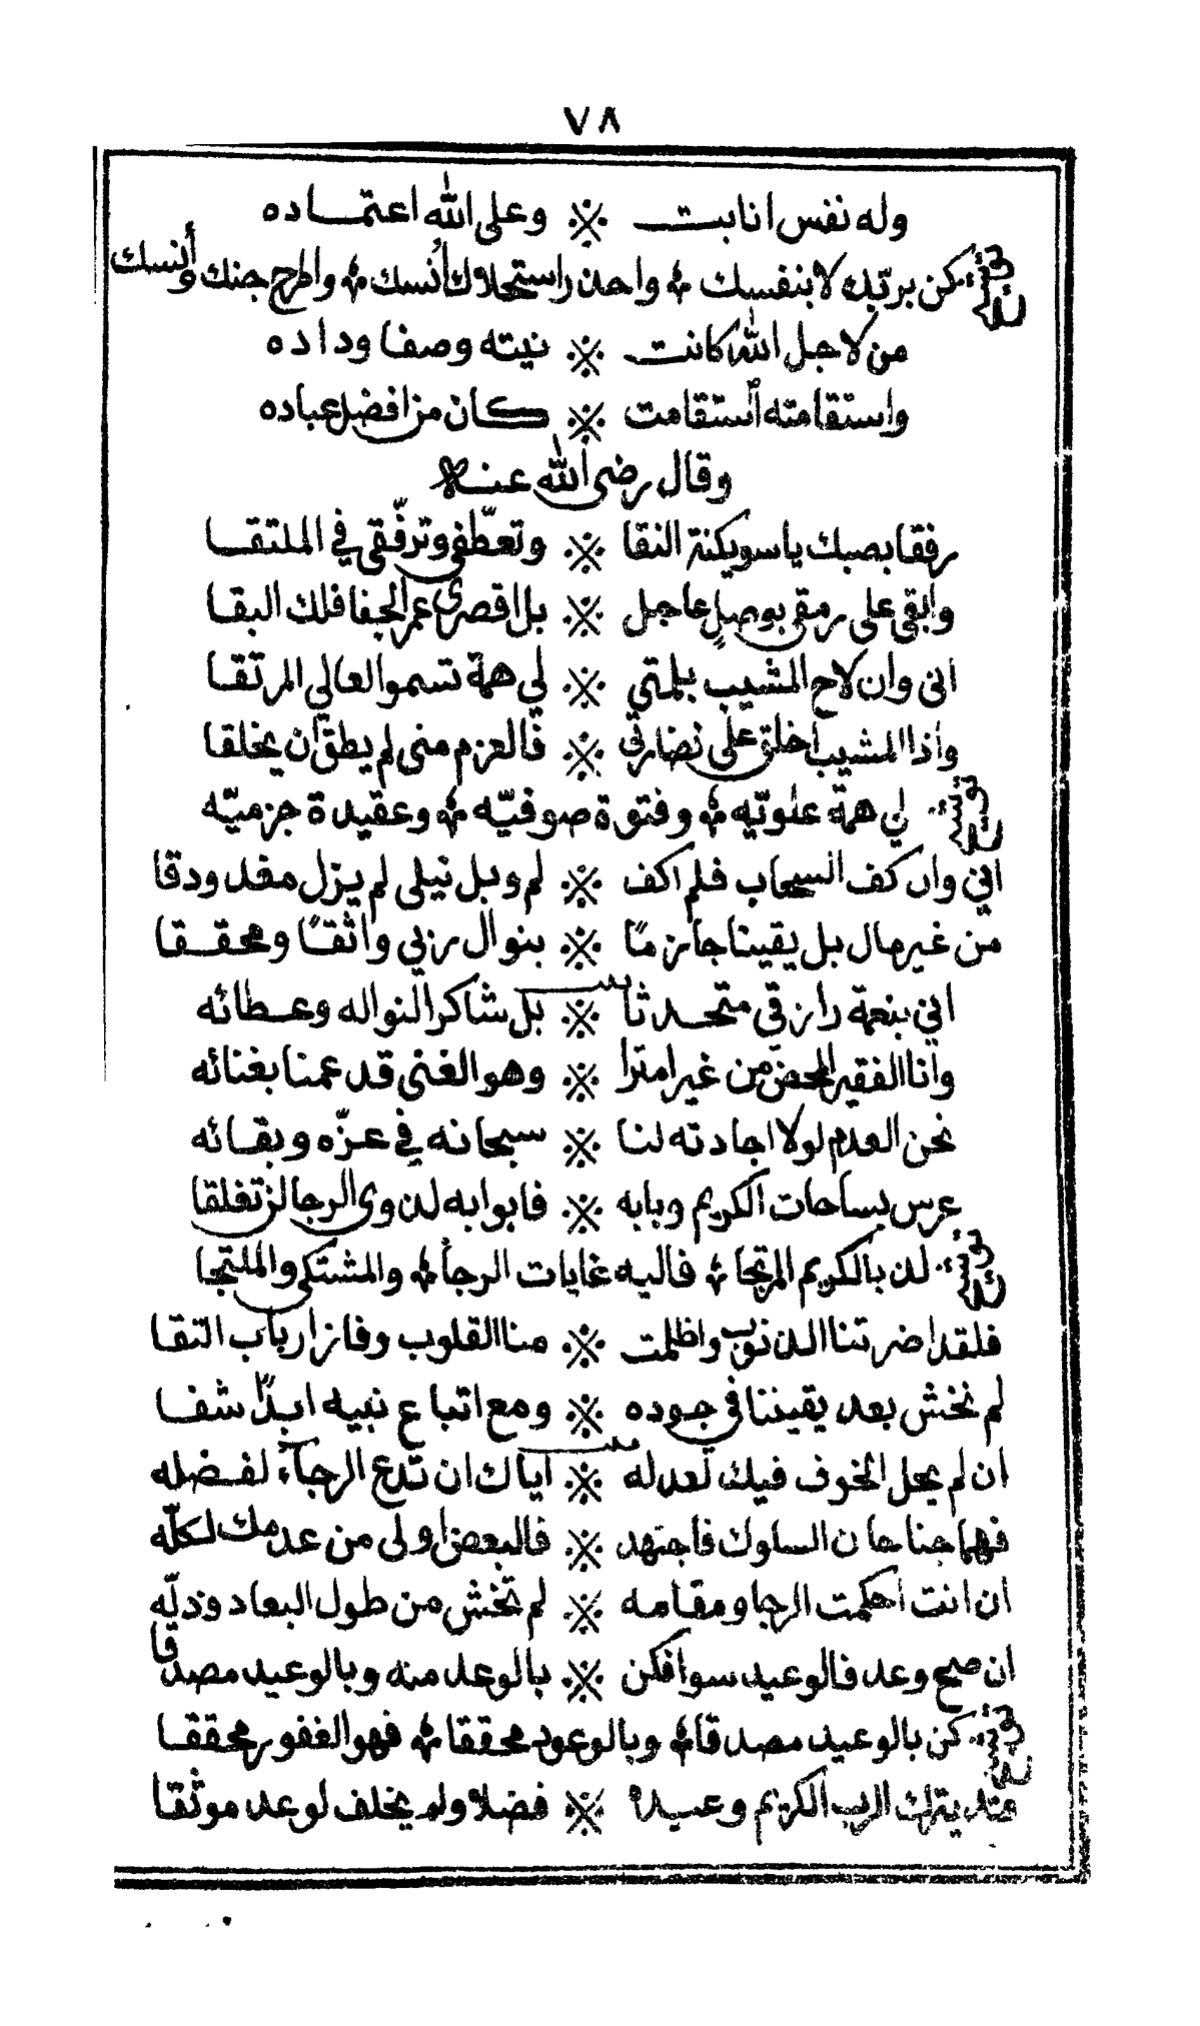 ٧٨
وله نفس انابت ※ وعلى الله اعتماده
توشيح كن بربّك لا بنفسك ؞ واحذر استحلاك أنسك ؞ واطرح جنك وأنسك
من لاجل الله كانت ※ نيته وصفا وداده
واستقامته استقامت ※ كان من افضل عباده
وقال رضى الله عنه
رفقا بصبك يا سويكنة النقا ※ وتعطّفي وترفّقي في الملتقا
وابقى على رمقى بوصلٍ عاجل ※ بل اقصرى عمر الجفا فلك البقا
انى وان لاح المشيب بلمتي ※ لي همة تسموا لعالي المرتقا
واذا المشيب اخلق على نضارتي ※ فالعزم منى لم يطق ان يخلقا
توشيح لي همة علويّه ؞ وفتوة صوفيّه ؞ وعقيدة جزميّه
اني وان كف السحاب فلم اكف ※ لم وبل نيلى لم يزل مغدودقا
من غير مال بل يقينا جازمًا ※ بنوال ربي واثقًا ومحققا
اني بنعمة رازقي متحدثا ※ بل شاكرا لنواله وعطائه
وانا الفقير المحض من غير امترا ※ وهو الغنى قد عمنا بغنائه
نحن العدم لولا اجادته لنا ※ سبحانه في عزّه وبقائه
عرس بساحات الكريم وبابه ※ فابوابه لذوى الرجا لن تغلقا
توشيح لذ بالكريم المرتجا ؞ فاليه غايات الرجا ؞ والمشتكى والملتجا
فلقد اضرتنا الذنوب واظلمت ※ منا القلوب وفاز ارباب التقا
لم نخش بعد يقيننا في جوده ※ ومع اتباع نبيه ابدًا شقا
ان لم يحل الخوف فيك لعدله ※ اياك ان تدع الرجآء لفضله
فهما جناحان السلوك فاجتهد ※ فالبعض اولى من عدمك لكلّه
ان انت احكمت الرجا ومقامه ※ لم تخش من طول البعاد وذلّه
ان صح وعد فالوعيد سوا فكن ※ بالوعد منه وبالوعيد مصدقا
توشيح كن بالوعيد مصدقا ؞ وبالوعود محققا ؞ فهو الغفور محققا
قد يترك الرب الكريم وعيده ※ فضلا ولم يخلف لوعد موثقا